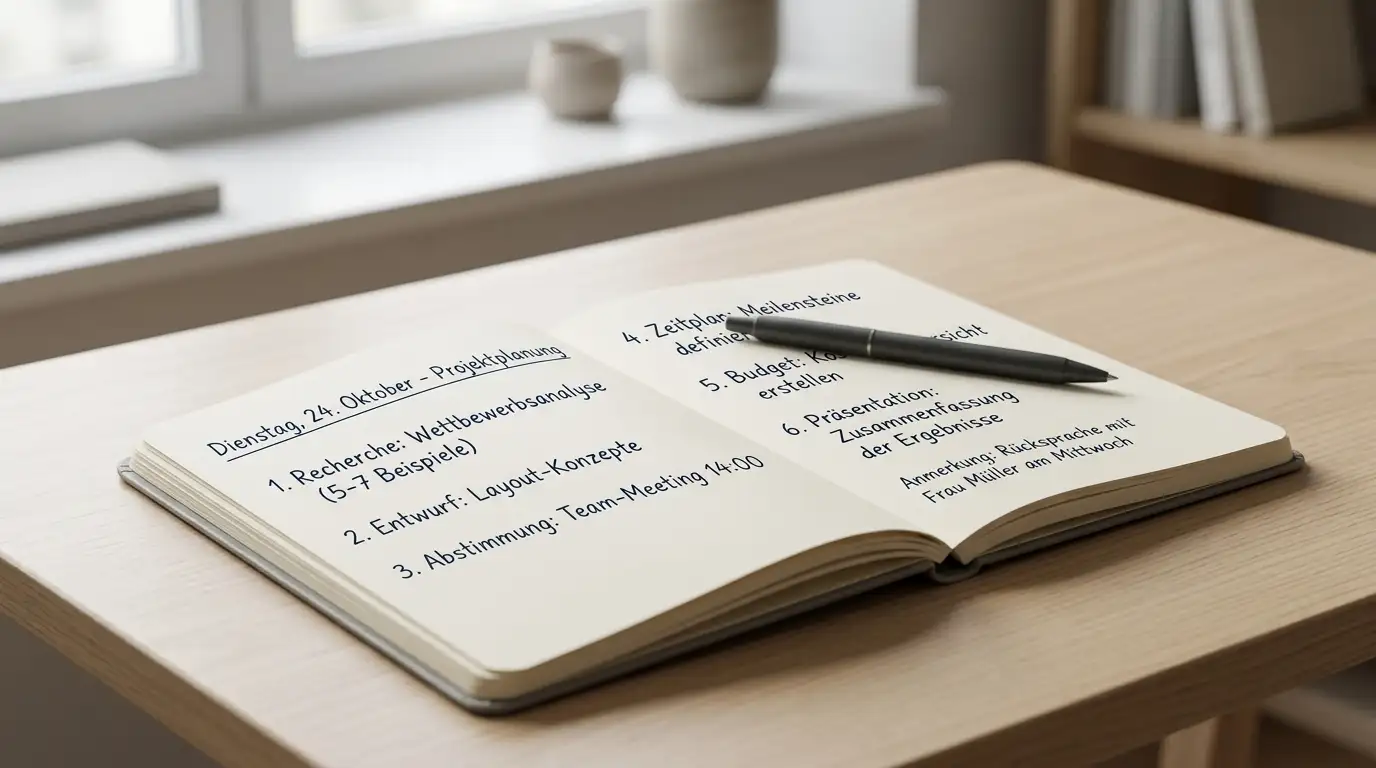 Dienstag, 24. Oktober – Projektplanung
1. Recherche: Wettbewerbsanalyse
(5-7 Beispiele)
2. Entwurf: Layout-Konzepte
3. Abstimmung: Team-Meeting 14:00
4. Zeitplan: Meilensteine
5. Budget:
erstellen
6. Präsentation:
Zusammenfassung
der Ergebnisse
Anmerkung: Rücksprache mit
Frau Müller am Mittwoch